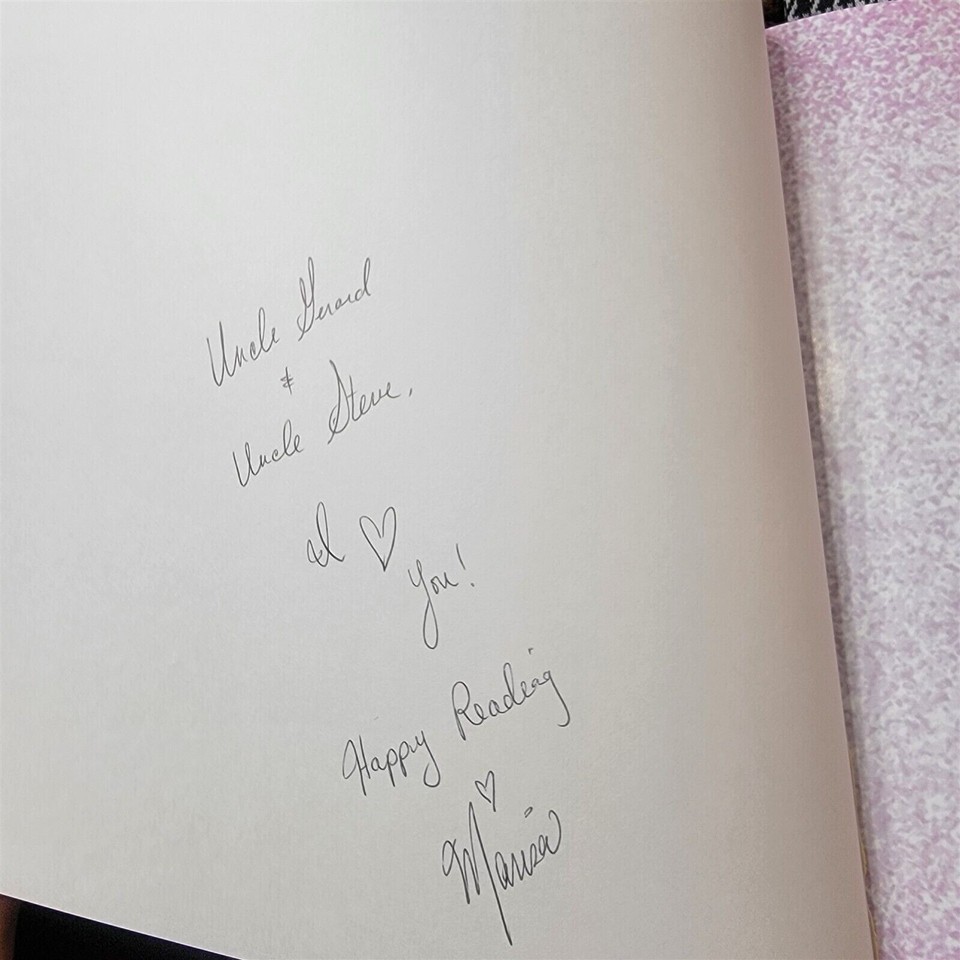 Uncle Gerard
&
Uncle Steve,
I ♡
you!
Happy Reading
♡
Marisa